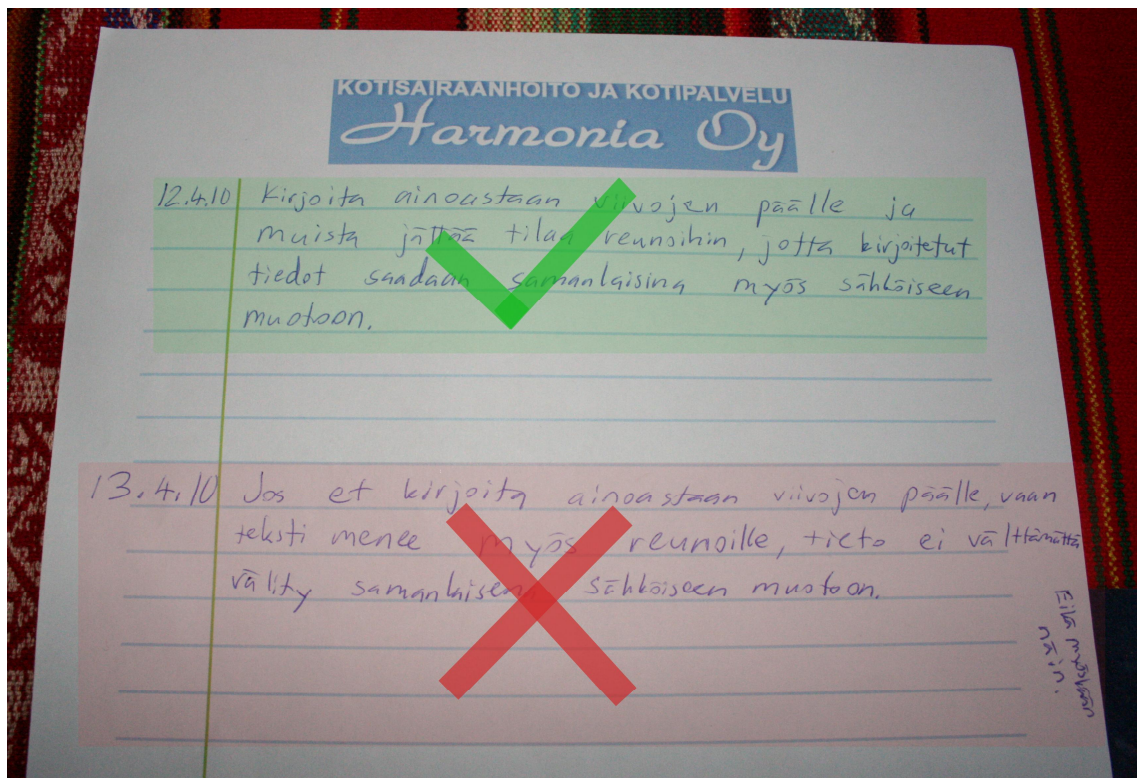 KOTISAIRAANHOITO JA KOTIPALVELU
Harmonia Oy
12.4.10 Kirjoita ainoastaan viivojen päälle ja
muista jättää tilaa reunoihin, jotta kirjoitetut
tiedot saadaan samanlaisina myös sähköiseen
muotoon.
13.4.10 Jos et kirjoita ainoastaan viivojen päälle, vaan
teksti menee myös reunoille, tieto ei välttämättä
välity samanlaisena sähköiseen muotoon.
Eikä myöskään
näin.